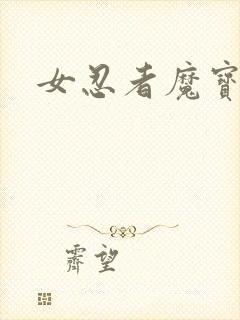 女忍者魔寶
霽望